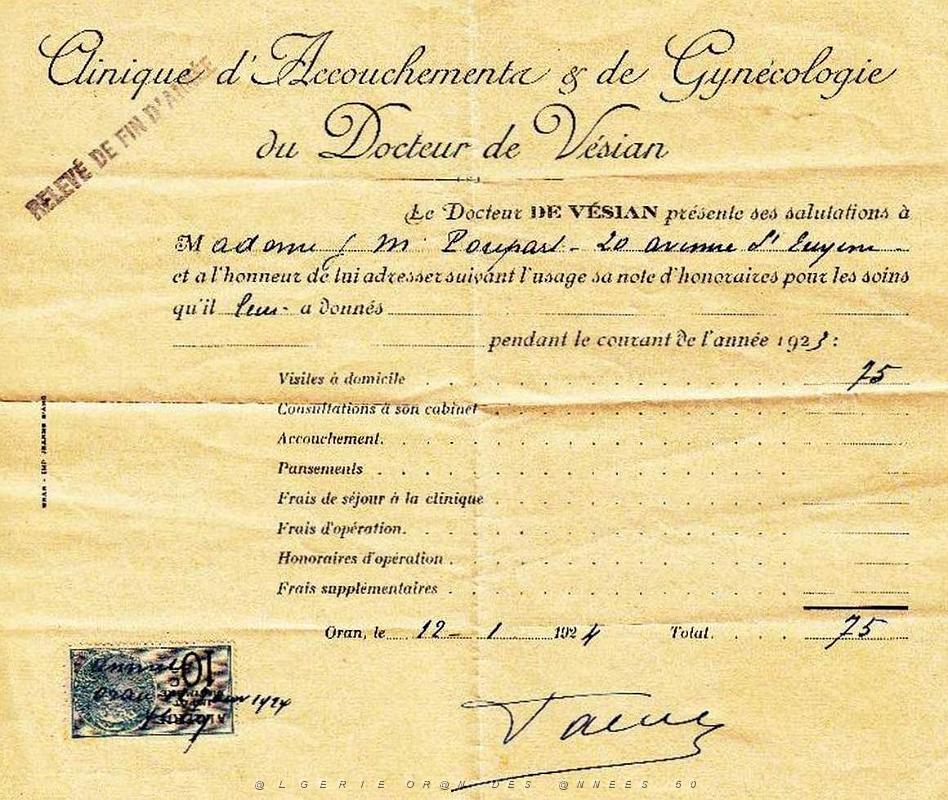 Clinique d'Accouchements & de Gynécologie
du Docteur de Vésian
RELEVÉ DE FIN D'ANNÉE
Le Docteur DE VÉSIAN présente ses salutations à
Madame J M Poupart - 20 avenue St Eugène
et a l'honneur de lui adresser suivant l'usage sa note d'honoraires pour les soins
qu'il leur a donnés
pendant le courant de l'année 1923 :
Visites à domicile 75
Consultations à son cabinet
Accouchement
Pansements
Frais de séjour à la clinique
Frais d'opération
Honoraires d'opération
Frais supplémentaires
Oran, le 12 - 1 1924 Total 75
ORAN - IMP JEANNE D'ARC
10
Oran 1924
@LGERIE OR@N DES @NNEES 50